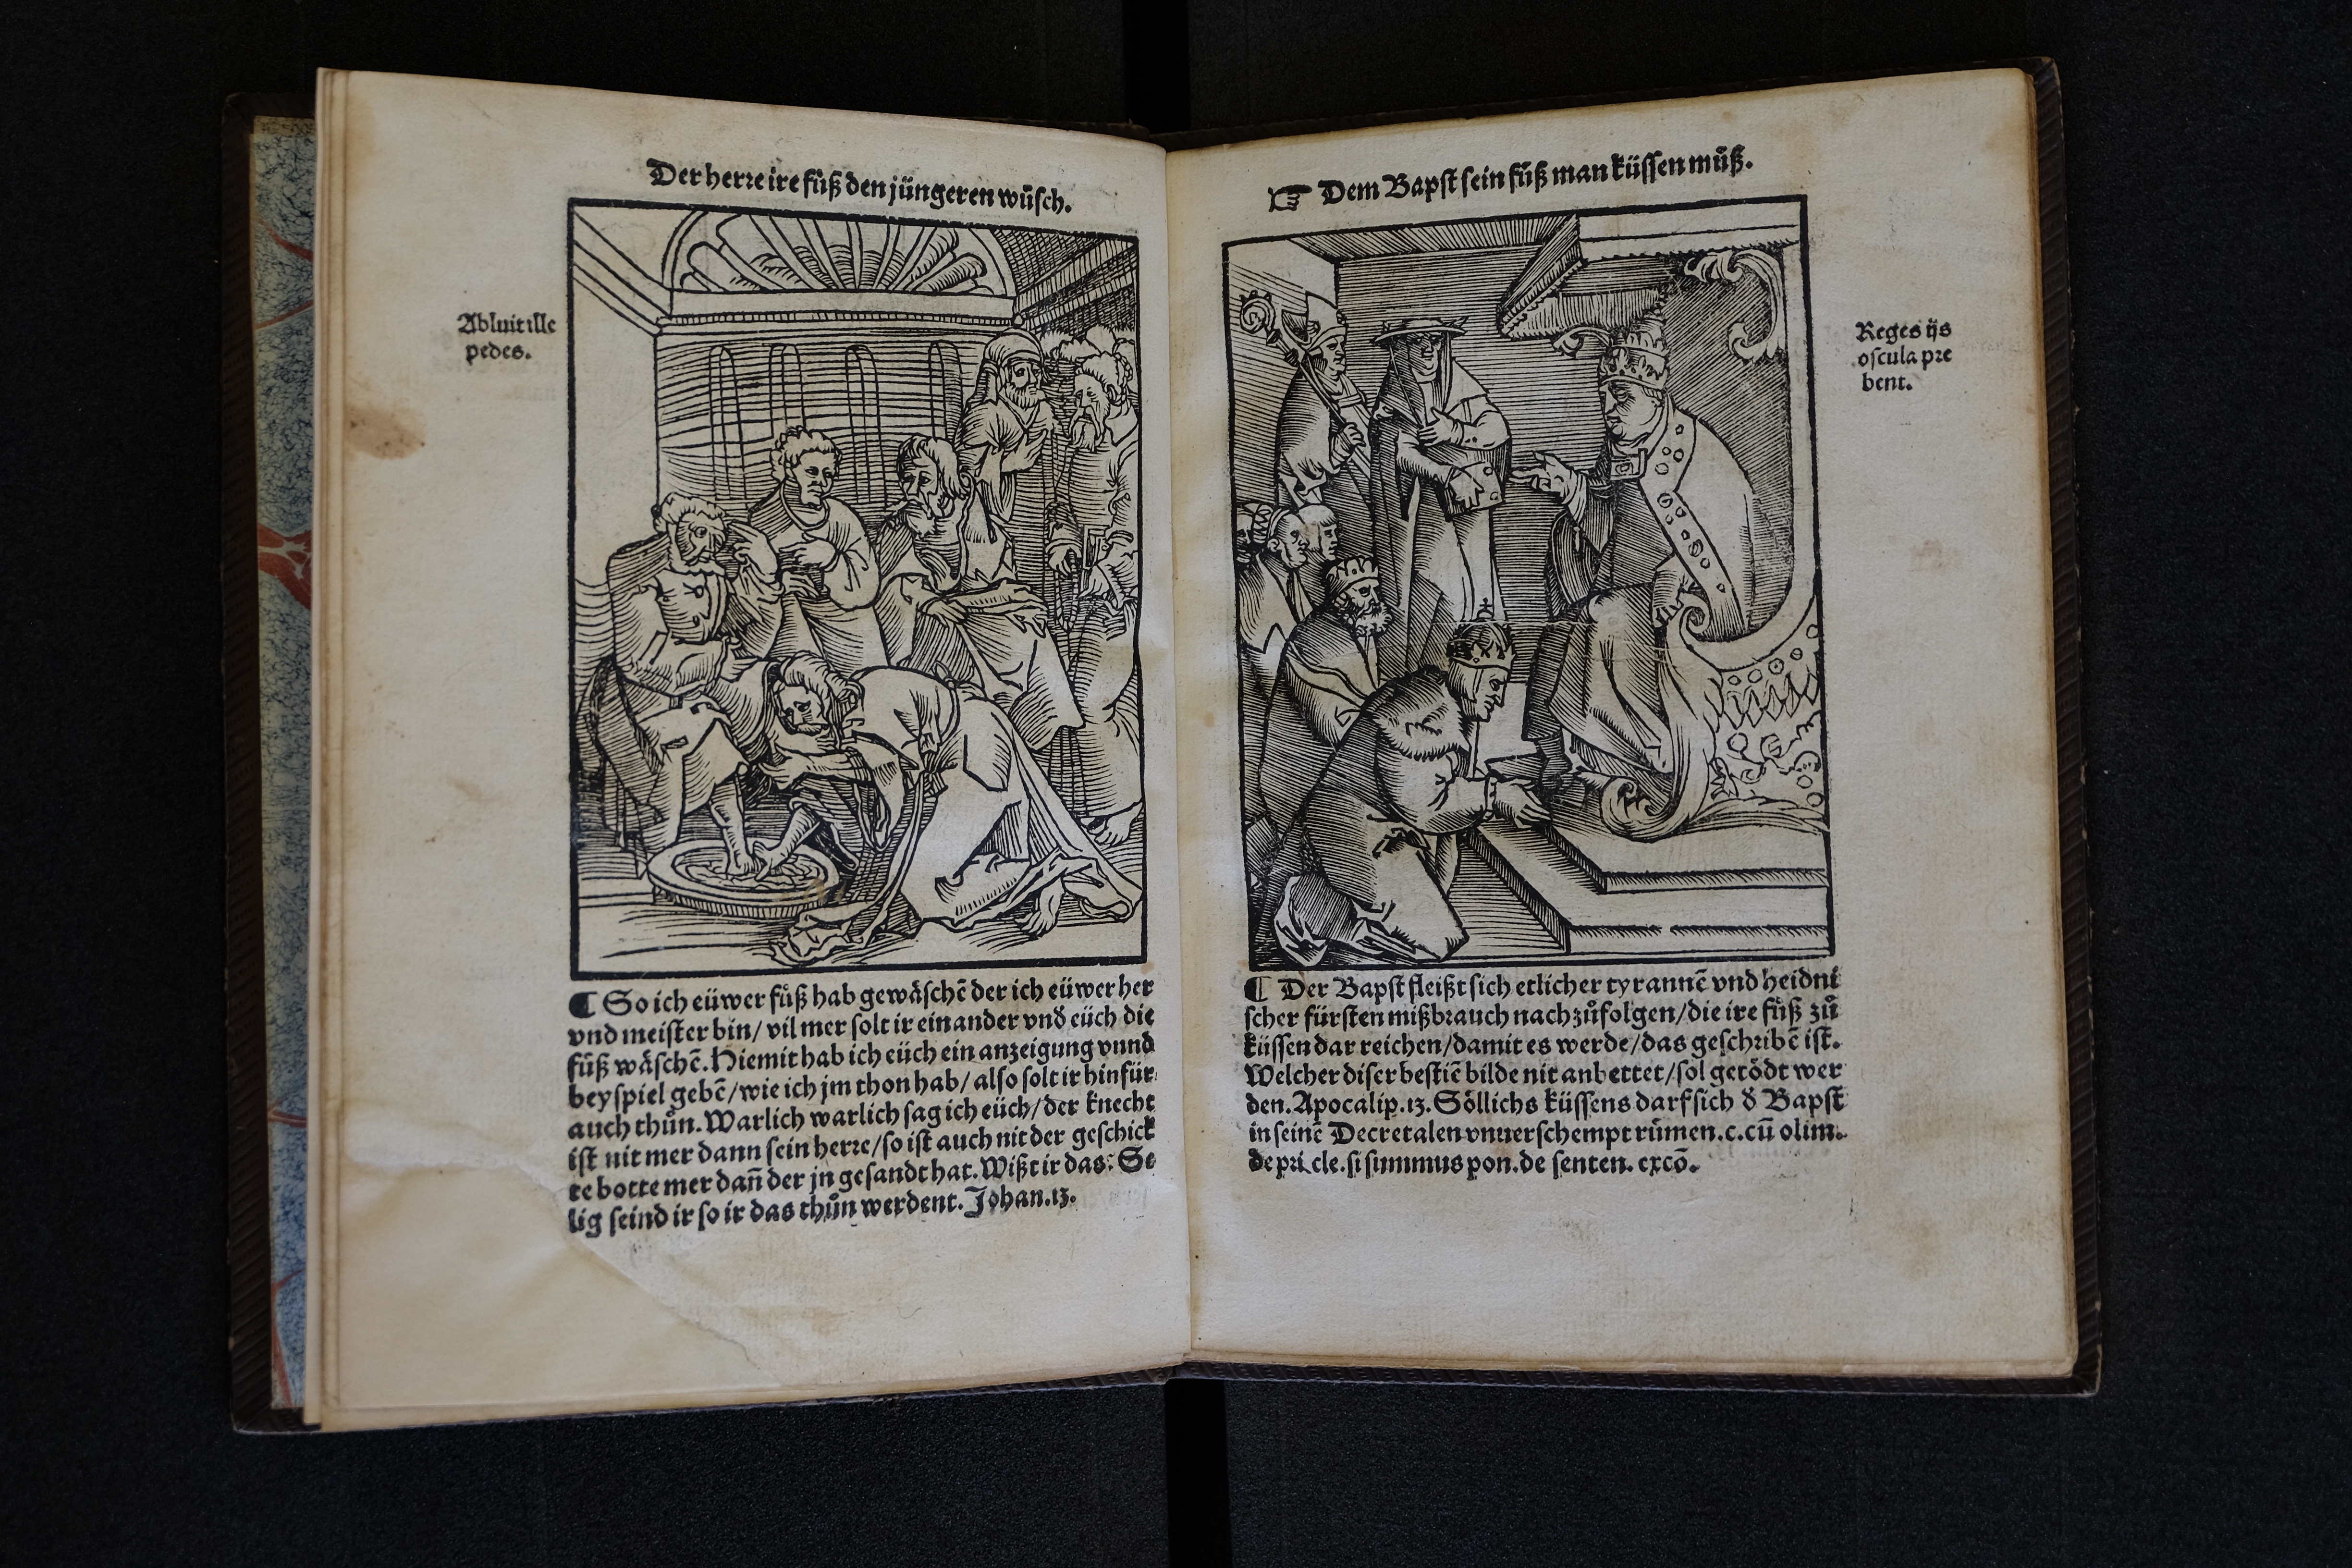 Der herre ire fuͤß den jüngeren wuͤsch.
Abluit ille
pedes.
¶ So ich eüwer fuͤß hab gewaͤschē der ich eüwer her
vnd meister bin/ vil mer solt ir einander vnd eüch die
fuͤß waͤschē. Hiemit hab ich eüch ein anzeigung vnnd
beyspiel gebē/ wie ich jm thon hab/ also solt ir hinfür
auch thuͦn. Warlich warlich sag ich eüch/ der knecht
ist nit mer dann sein herre/ so ist auch nit der geschick
te botte mer dañ der jn gesandt hat. Wißt ir das: Se
lig seind ir so ir das thuͦn werdent. Johan. 13.
☞ Dem Bapst sein fuͤß man küssen muͤß.
Reges ijs
oscula pre
bent.
¶ Der Bapst fleißt sich etlicher tyrannē vnd heidni
scher fürsten mißbrauch nachzuͦfolgen/ die ire fuͤß zuͦ
küssen dar reichen/ damit es werde/ das geschribē ist.
Welcher diser bestiē bilde nit anbettet/ sol getödt wer
den. Apocalip. 13. Söllichs küssens darf sich d̕ Bapst
in seinē Decretalen vnuerschempt ruͤmen. c. cū olim.
de pri. cle. si summus pon. de senten. excō.